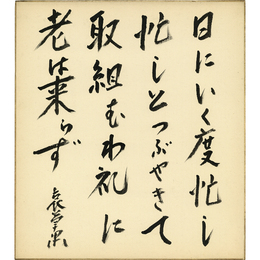 日にいく度忙し
忙しとつぶやきて
取組むわれに
老は来らず